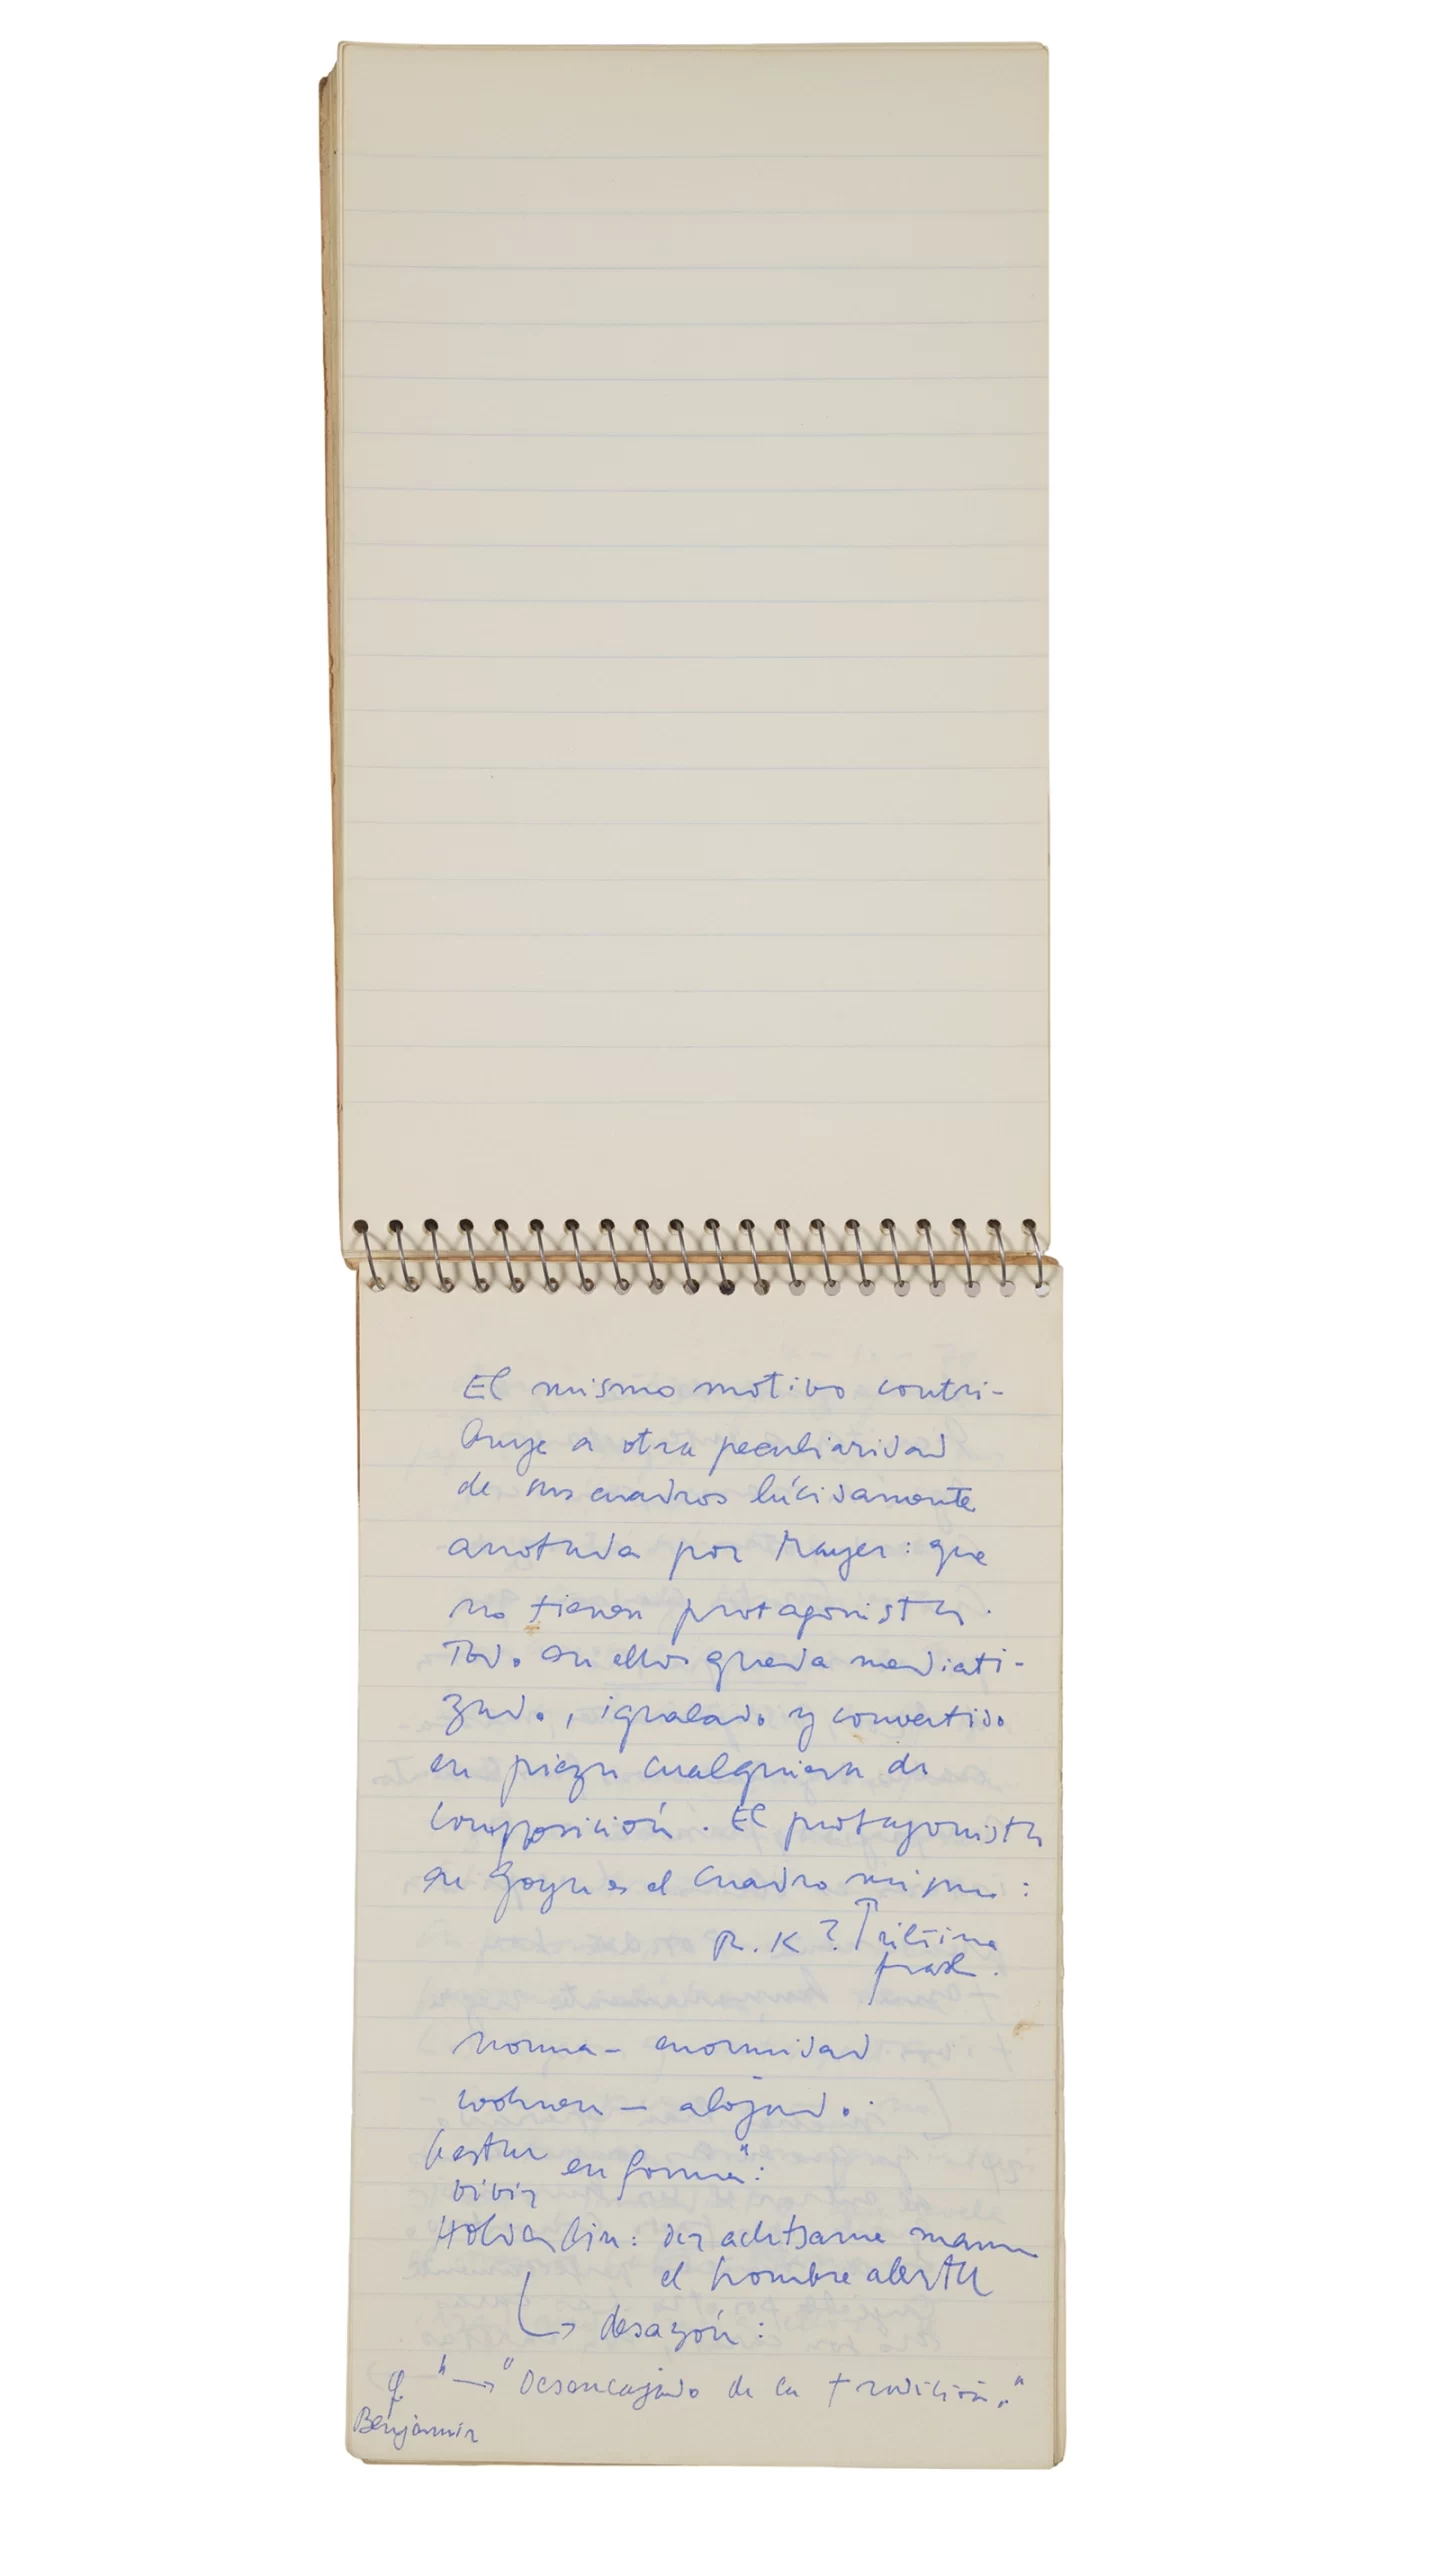 El mismo motivo contri-
buye a otra peculiaridad
de sus cuadros lúcidamente
anotada por Mayer: que
no tienen protagonista.
Todo en ellos queda mediati-
zado, igualado y convertido
en pieza cualquiera de
composición. El protagonista
en Goya es el cuadro mismo:
R. K? ↑ última
frase.
norma – enormidad
wohnen – alojado.
estar en forma":
vivir
Hölderlin: der achtsame mann
el hombre alerta
↳ desazón:
cf. " → "Desencajado de la tradición."
Benjamin